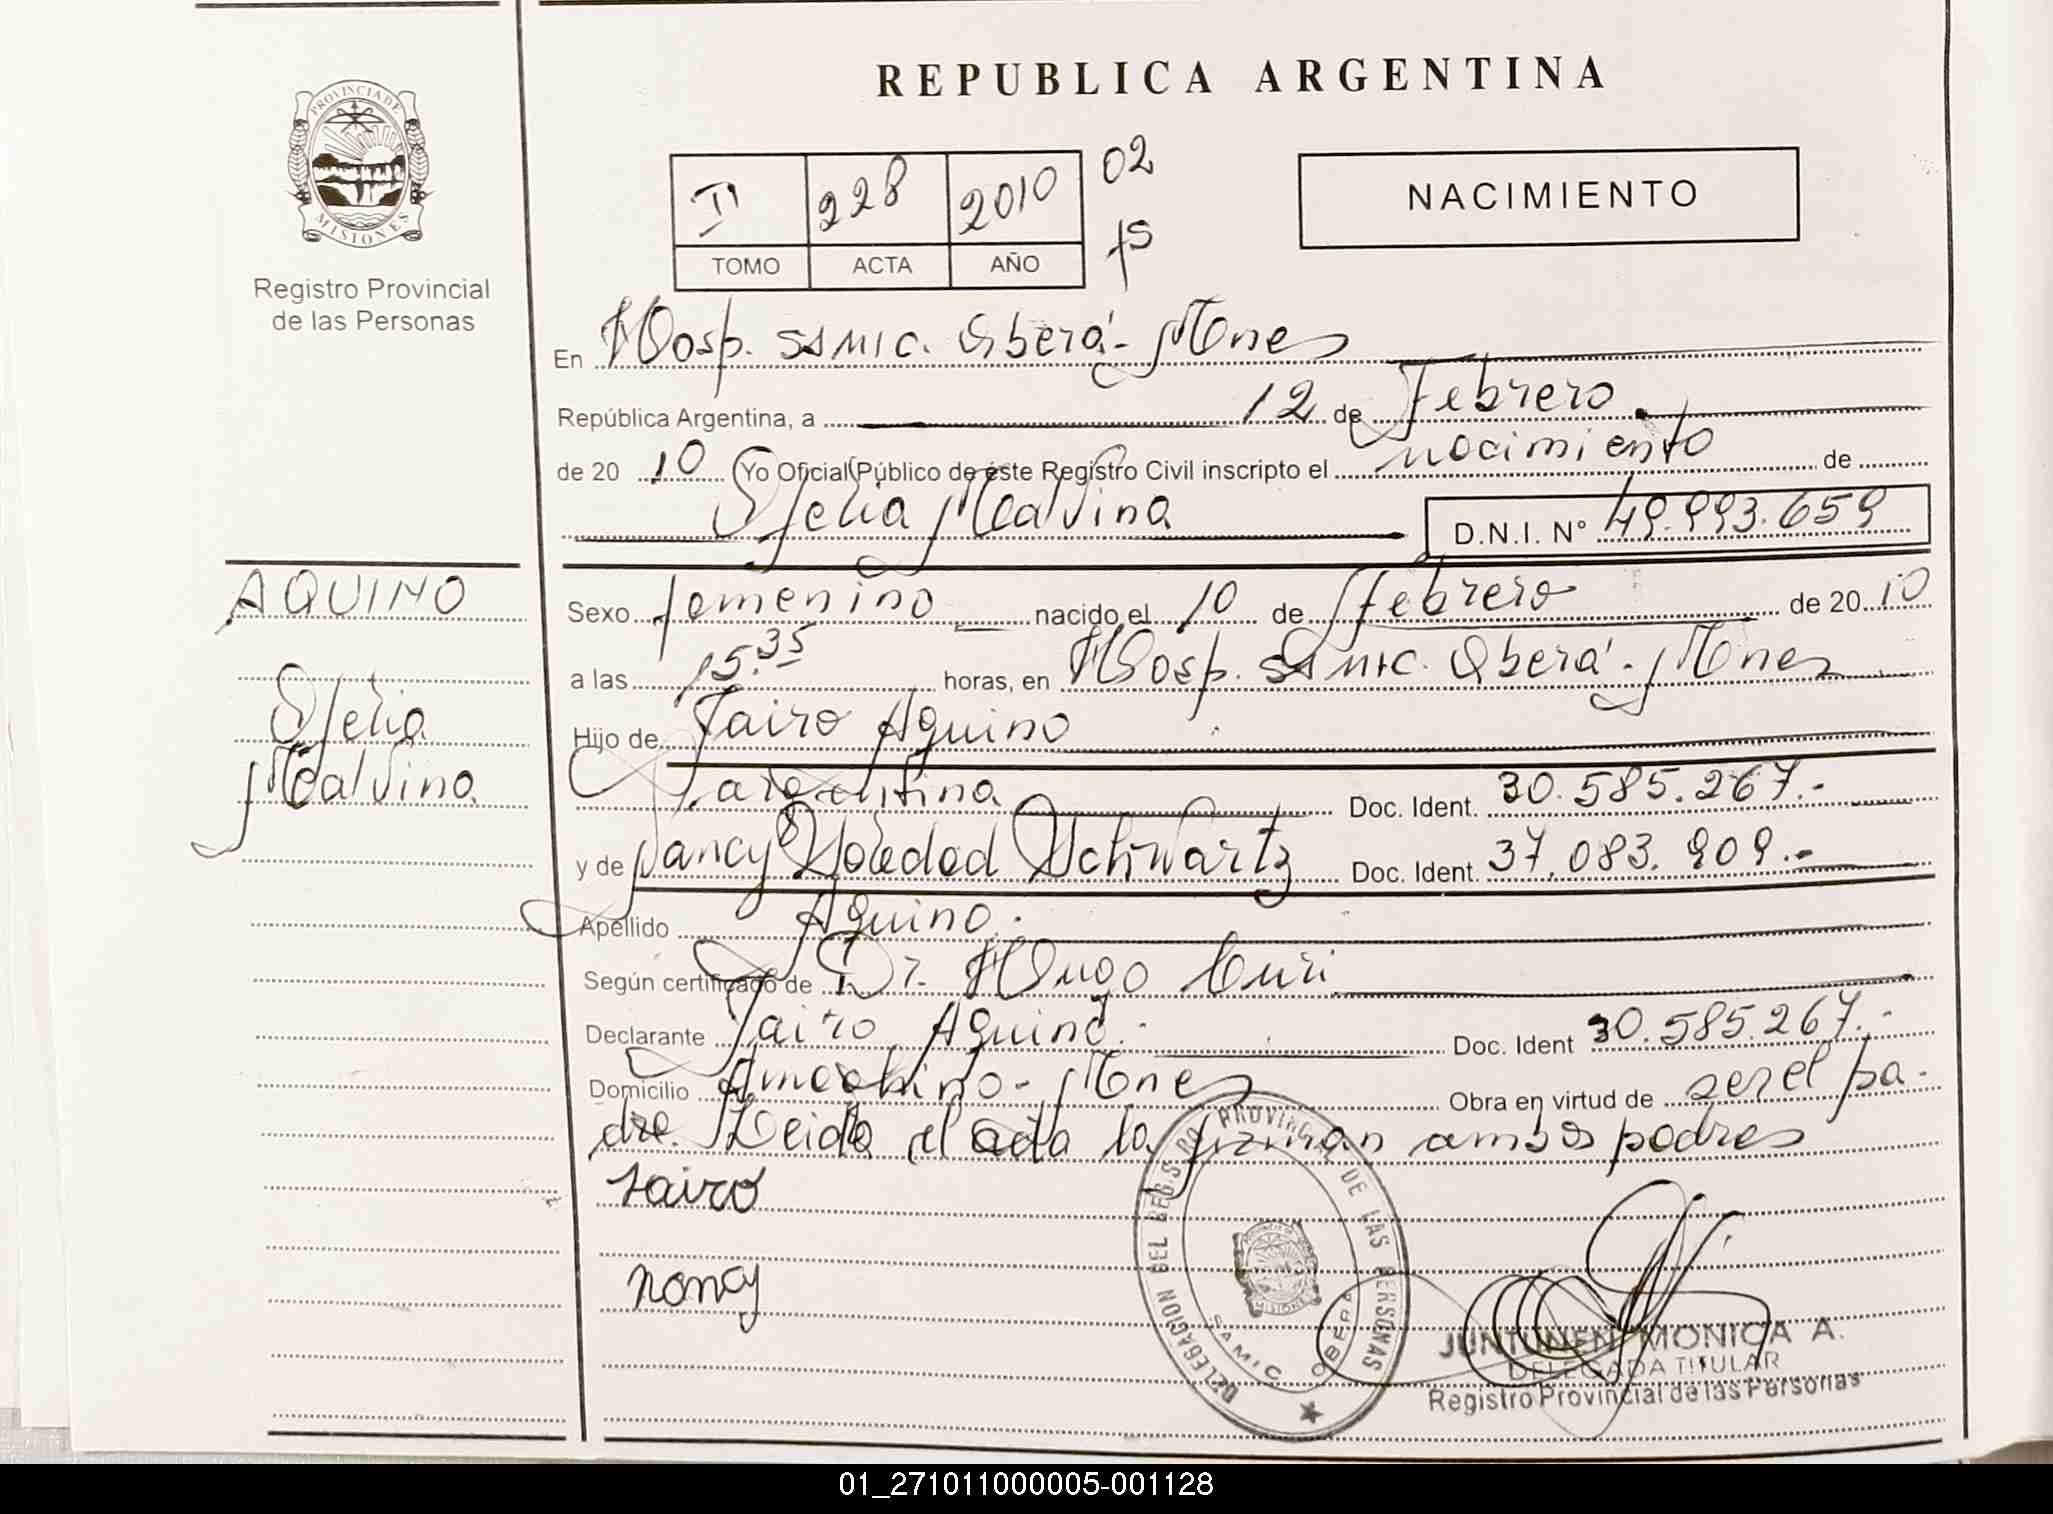 REPUBLICA ARGENTINA
PROVINCIA DE
MISIONES
Registro Provincial
de las Personas
II 228 2010 02
TOMO ACTA AÑO
NACIMIENTO
En Hosp. SAMIC. Oberá - Mnes
República Argentina, a 12 de Febrero
de 20 10 Yo Oficial Público de éste Registro Civil inscripto el nacimiento de
Ofelia Malvina D.N.I. Nº 49.993.659
AQUINO
Ofelia
Malvina
Sexo femenino nacido el 10 de Febrero de 20 10
a las 15.35 horas, en Hosp. SAMIC. Oberá - Mnes
Hijo de Jairo Aquino
argentina Doc. Ident. 30.585.267.-
y de Nancy Soledad Schwartz Doc. Ident. 37.083.909.-
Apellido Aquino.
Según certificado de Dr. Hugo Curi
Declarante Jairo Aquino. Doc. Ident 30.585.267.-
Domicilio - Mnes Obra en virtud de ser el pa-
dre. Leida el acta la firman ambos padres
Jairo
Nancy
DELEGACION DEL REG.S.RO PROVINCIAL DE LAS PERSONAS
MISIONES
SAMIC OBERA
JUNTUNEN MONICA A.
DELEGADA TITULAR
Registro Provincial de las Personas
01_271011000005-001128